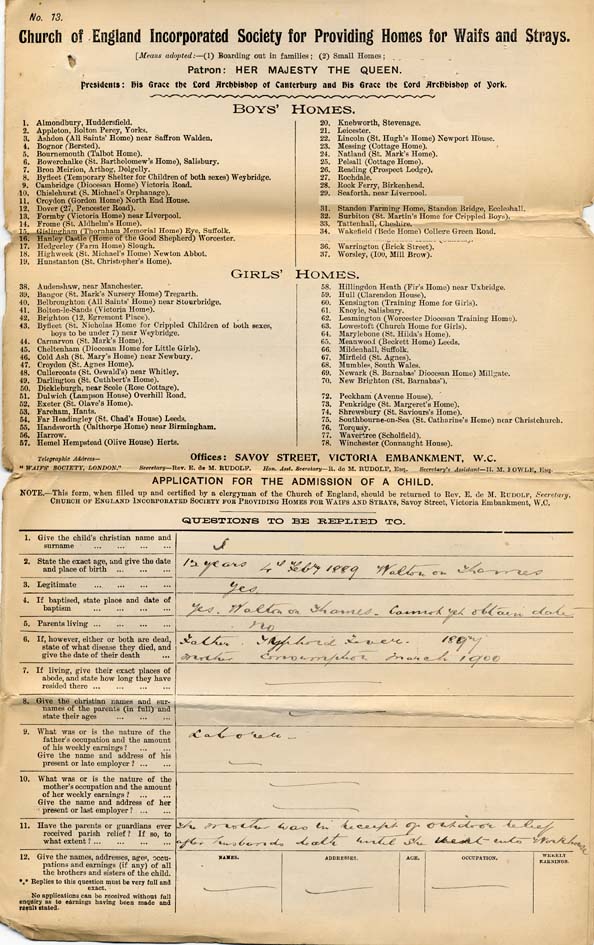 No. 13.
Church of England Incorporated Society for Providing Homes for Waifs and Strays.
[Means adopted:—(1) Boarding out in families; (2) Small Homes;
Patron: HER MAJESTY THE QUEEN.
Presidents: His Grace the Lord Archbishop of Canterbury and His Grace the Lord Archbishop of York.
BOYS' HOMES.
1. Almondbury, Huddersfield.
2. Appleton, Bolton Percy, Yorks.
3. Ashdon (All Saints' Home) near Saffron Walden.
4. Bognor (Bersted).
5. Bournemouth (Talbot Home).
6. Bowerchalke (St. Bartholomew's Home), Salisbury.
7. Bron Meirion, Arthog, Dolgelly.
8. Byfleet (Temporary Shelter for Children of both sexes) Weybridge.
9. Cambridge (Diocesan Home) Victoria Road.
10. Chislehurst (S. Michael's Orphanage).
11. Croydon (Gordon Home) North End House.
12. Dover (27, Pencester Road).
13. Formby (Victoria Home) near Liverpool.
14. Frome (St. Aldhelm's Home).
15. Gislingham (Thornham Memorial Home) Eye, Suffolk.
16. Hanley Castle (Home of the Good Shepherd) Worcester.
17. Hedgerley (Farm Home) Slough.
18. Highweek (St. Michael's Home) Newton Abbot.
19. Hunstanton (St. Christopher's Home).
20. Knebworth, Stevenage.
21. Leicester.
22. Lincoln (St. Hugh's Home) Newport House.
23. Messing (Cottage Home).
24. Natland (St. Mark's Home).
25. Pelsall (Cottage Home).
26. Reading (Prospect Lodge).
27. Rochdale.
28. Rock Ferry, Birkenhead.
29. Seaforth, near Liverpool.
31. Standon Farming Home, Standon Bridge, Eccleshall.
32. Surbiton (St. Martin's Home for Crippled Boys).
33. Tattenhall, Cheshire.
34. Wakefield (Bede Home) College Green Road.
36. Warrington (Brick Street).
37. Worsley, (100, Mill Brow).
GIRLS' HOMES.
38. Audenshaw, near Manchester.
39. Bangor (St. Mark's Nursery Home) Tregarth.
40. Belbroughton (All Saints' Home) near Stourbridge.
41. Bolton-le-Sands (Victoria Home).
42. Brighton (12, Egremont Place).
43. Byfleet (St. Nicholas Home for Crippled Children of both sexes,
boys to be under 7) near Weybridge.
44. Carnarvon (St. Mark's Home).
45. Cheltenham (Diocesan Home for Little Girls).
46. Cold Ash (St. Mary's Home) near Newbury.
47. Croydon (St. Agnes Home).
48. Cullercoats (St. Oswald's) near Whitley.
49. Darlington (St. Cuthbert's Home).
50. Dickleburgh, near Scole (Rose Cottage).
51. Dulwich (Lampson House) Overhill Road.
52. Exeter (St. Olave's Home).
53. Fareham, Hants.
54. Far Headingley (St. Chad's House) Leeds.
55. Handsworth (Calthorpe Home) near Birmingham.
56. Harrow.
57. Hemel Hempstead (Olive House) Herts.
58. Hillingdon Heath (Fir's Home) near Uxbridge.
59. Hull (Clarendon House).
60. Kensington (Training Home for Girls).
61. Knoyle, Salisbury.
62. Leamington (Worcester Diocesan Training Home).
63. Lowestoft (Church Home for Girls).
64. Marylebone (St. Hilda's Home).
65. Meanwood (Beckett Home) Leeds.
66. Mildenhall, Suffolk.
67. Mirfield (St. Agnes).
68. Mumbles, South Wales.
69. Newark (S. Barnabas' Diocesan Home) Millgate.
70. New Brighton (St. Barnabas').
72. Peckham (Avenue House).
73. Penkridge (St. Margaret's Home).
74. Shrewsbury (St. Saviours's Home).
75. Southbourne-on-Sea (St. Catharine's Home) near Christchurch.
76. Torquay.
77. Wavertree (Scholfield).
78. Winchester (Connaught House).
Telegraphic Address—
"WAIFS' SOCIETY, LONDON."
Offices: SAVOY STREET, VICTORIA EMBANKMENT, W.C.
Secretary—Rev. E. de M. RUDOLF. Hon. Asst. Secretary—R. de M. RUDOLF, Esq. Secretary's Assistant—H. M. FOWLE, Esq.
APPLICATION FOR THE ADMISSION OF A CHILD.
NOTE.—This form, when filled up and certified by a clergyman of the Church of England, should be returned to Rev. E. de M. RUDOLF, Secretary,
CHURCH OF ENGLAND INCORPORATED SOCIETY FOR PROVIDING HOMES FOR WAIFS AND STRAYS, Savoy Street, Victoria Embankment, W.C.
QUESTIONS TO BE REPLIED TO.
1. Give the child's christian name and
surname ... ... ... ...
2. State the exact age, and give the date
and place of birth ... ... ...
12 years 4th Feby 1889 Walton on Thames
3. Legitimate ... ... ... ...
Yes
4. If baptised, state place and date of
baptism ... ... ... ...
Yes. Walton on Thames. Cannot yet obtain date
5. Parents living ... ... ... ...
No
6. If, however, either or both are dead,
state of what disease they died, and
give the date of their death ...
Father. Typhoid Fever. 1897
Mother Consumption March 1900
7. If living, give their exact places of
abode, and state how long they have
resided there ... ... ... ...
8. Give the christian names and sur-
names of the parents (in full) and
state their ages ... ... ...
9. What was or is the nature of the
father's occupation and the amount
of his weekly earnings? ... ...
Give the name and address of his
present or late employer? ... ...
Laborer
10. What was or is the nature of the
mother's occupation and the amount
of her weekly earnings? ... ...
Give the name and address of her
present or last employer? ... ...
11. Have the parents or guardians ever
received parish relief? If so, to
what extent? ... ... ... ...
The mother was in receipt of outdoor relief
after husbands death until she went into Workhouse
12. Give the names, addresses, ages, occu-
pations and earnings (if any) of all
the brothers and sisters of the child.
*.* Replies to this question must be very full and
exact.
No applications can be received without full
enquiry as to earnings having been made and
result stated.
NAMES. ADDRESSES. AGE. OCCUPATION. WEEKLY
EARNINGS.